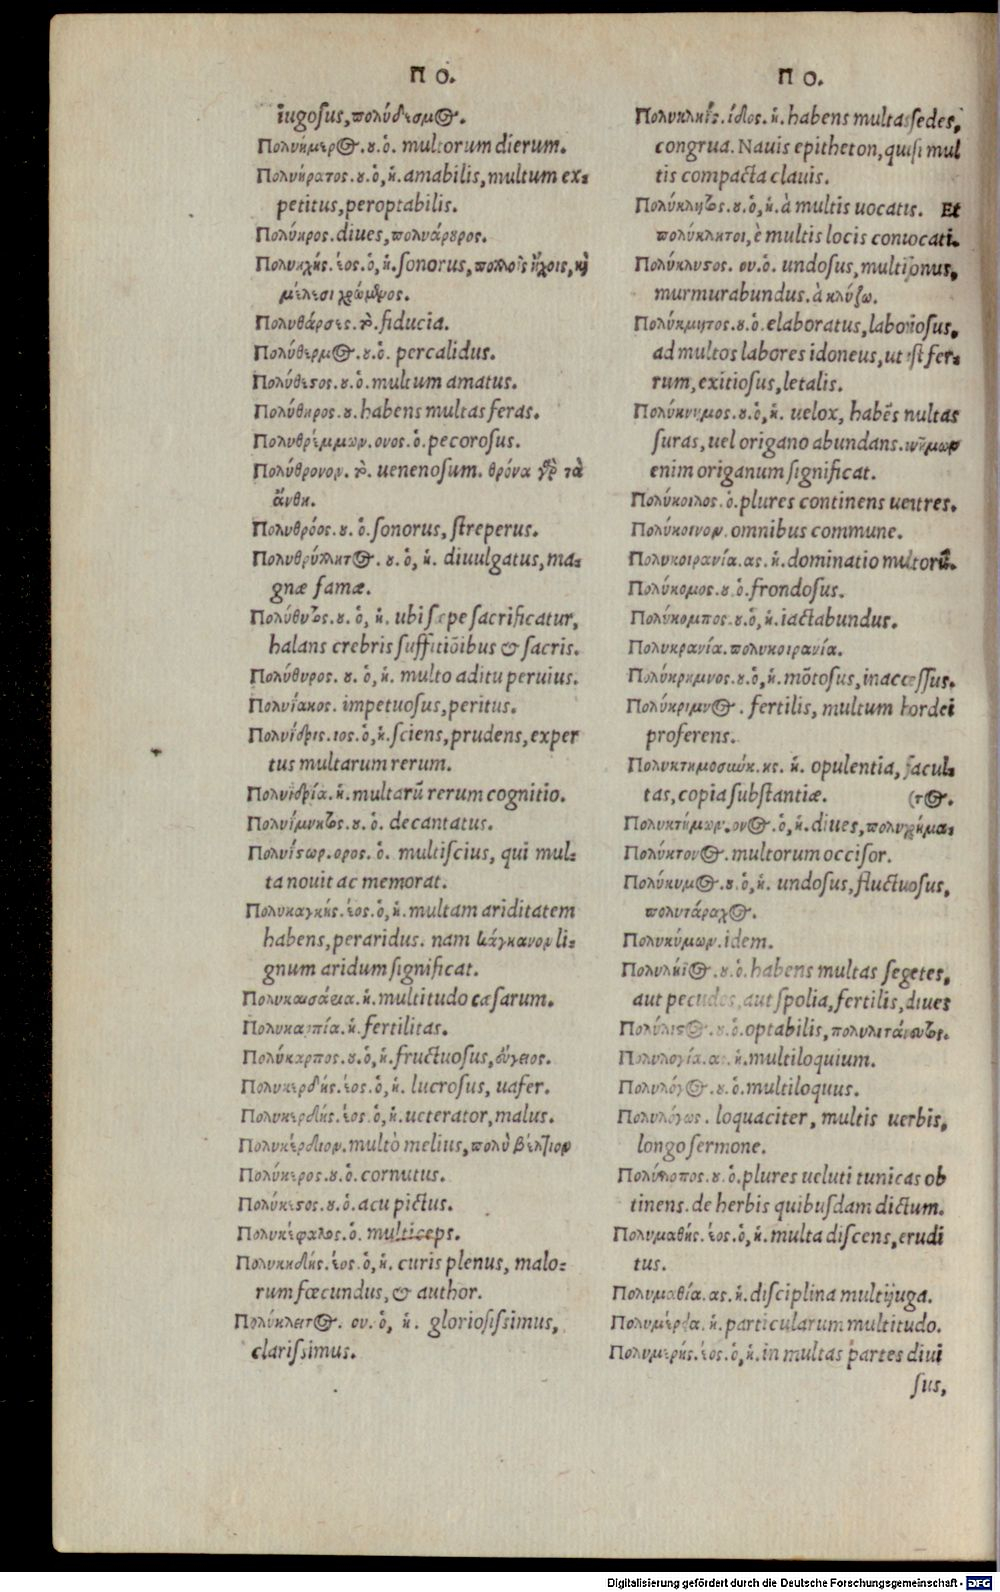 ΠΟ.
iugosus, πολύδεσμος.
Πολυήμερος. ου. ὁ. multorum dierum.
Πολυήρατος. ου. ὁ, ἡ. amabilis, multum ex=
petitus, peroptabilis.
Πολύηρος. diues, πολυάρουρος.
Πολυηχής. έος. ὁ, ἡ. sonorus, πολλοῖς ἤχοις, καὶ
μέλεσι χρώμενος.
Πολυθάρσες. τὸ. fiducia.
Πολύθερμος. ου. ὁ. percalidus.
Πολύθεστος. ου. ὁ. multum amatus.
Πολύθηρος. ου. habens multas feras.
Πολυθρέμμων. ονος. ὁ. pecorosus.
Πολύθρονον. τὸ. uenenosum. θρόνα γὰρ τὰ
ἄνθη.
Πολυθρόος. ου. ὁ. sonorus, streperus.
Πολυθρύλλητος. ου. ὁ, ἡ. diuulgatus, ma=
gnæ famæ.
Πολύθυτος. ου. ὁ, ἡ. ubi sæpe sacrificatur,
halans crebris suffitiōibus & sacris.
Πολύθυρος. ου. ὁ, ἡ. multo aditu peruius.
Πολυΐακος. impetuosus, peritus.
Πολυΐδρις. ιος. ὁ, ἡ. sciens, prudens, exper
tus multarum rerum.
Πολυϊδρία. ἡ. multarū rerum cognitio.
Πολυΐμνητος. ου. ὁ. decantatus.
Πολυΐστωρ. ορος. ὁ. multiscius, qui mul=
ta nouit ac memorat.
Πολυκαγκής. έος. ὁ, ἡ. multam ariditatem
habens, peraridus. nam κάγκανον li=
gnum aridum significat.
Πολυκαισάρεια. ἡ. multitudo cæsarum.
Πολυκαρπία. ἡ. fertilitas.
Πολύκαρπος. ου. ὁ, ἡ. fructuosus, εὔγειος.
Πολυκερδής. έος. ὁ, ἡ. lucrosus, uafer.
Πολυκερδής. έος. ὁ, ἡ. ueterator, malus.
Πολυκέρδιον. multò melius, πολὺ βέλτιον
Πολύκερος. ου. ὁ. cornutus.
Πολύκεστος. ου. ὁ. acu pictus.
Πολυκέφαλος. ὁ. multiceps.
Πολυκηδής. έος. ὁ, ἡ. curis plenus, malo=
rum fœcundus, & author.
Πολύκλειτος. ου. ὁ, ἡ. gloriosissimus,
clarissimus.
ΠΟ.
Πολυκληΐς. ίδος. ἡ. habens multas sedes,
congrua. Nauis epitheton, quasi mul
tis compacta clauis.
Πολύκλητος. ου. ὁ, ἡ. à multis uocatus. Et
πολύκλητοι, è multis locis conuocati.
Πολύκλυστος. ου. ὁ. undosus, multisonus,
murmurabundus. à κλύζω.
Πολύκμητος. ου. ὁ. elaboratus, laboriosus,
ad multos labores idoneus, ut est fer=
rum, exitiosus, letalis.
Πολύκνημος. ου. ὁ, ἡ. uelox, habēs multas
suras, uel origano abundans. κνῆμον
enim origanum significat.
Πολύκοιλος. ὁ. plures continens uentres.
Πολύκοινον. omnibus commune.
Πολυκοιρανία. ας. ἡ. dominatio multorū.
Πολύκομος. ου. ὁ. frondosus.
Πολύκομπος. ου. ὁ, ἡ. iactabundus.
Πολυκρανία. πολυκοιρανία.
Πολύκρημνος. ου. ὁ, ἡ. mōtosus, inaccessus.
Πολύκριμνος. fertilis, multum hordei
proferens.
Πολυκτημοσύνη. ης. ἡ. opulentia, facul=
tas, copia substantiæ. (τος.
Πολυκτήμων. ονος. ὁ, ἡ. diues, πολυχρήμα=
Πολύκτονος. multorum occisor.
Πολύκυμος. ου. ὁ, ἡ. undosus, fluctuosus,
πολυτάραχος.
Πολυκύμων. idem.
Πολυλήϊος. ου. ὁ. habens multas segetes,
aut pecudes, aut spolia, fertilis, diues
Πολύλιστος. ου. ὁ. optabilis, πολυλιτάνευτος.
Πολυλογία. ας. ἡ. multiloquium.
Πολυλόγος. ου. ὁ. multiloquus.
Πολυλόγως. loquaciter, multis uerbis,
longo sermone.
Πολύλοπος. ου. ὁ. plures ueluti tunicas ob
tinens. de herbis quibusdam dictum.
Πολυμαθής. έος. ὁ, ἡ. multa discens, erudi
tus.
Πολυμαθία. ας. ἡ. disciplina multijuga.
Πολυμέρεια. ἡ. particularum multitudo.
Πολυμερής. έος. ὁ, ἡ. in multas partes diui
sus,
Digitalisierung gefördert durch die Deutsche Forschungsgemeinschaft - DFG